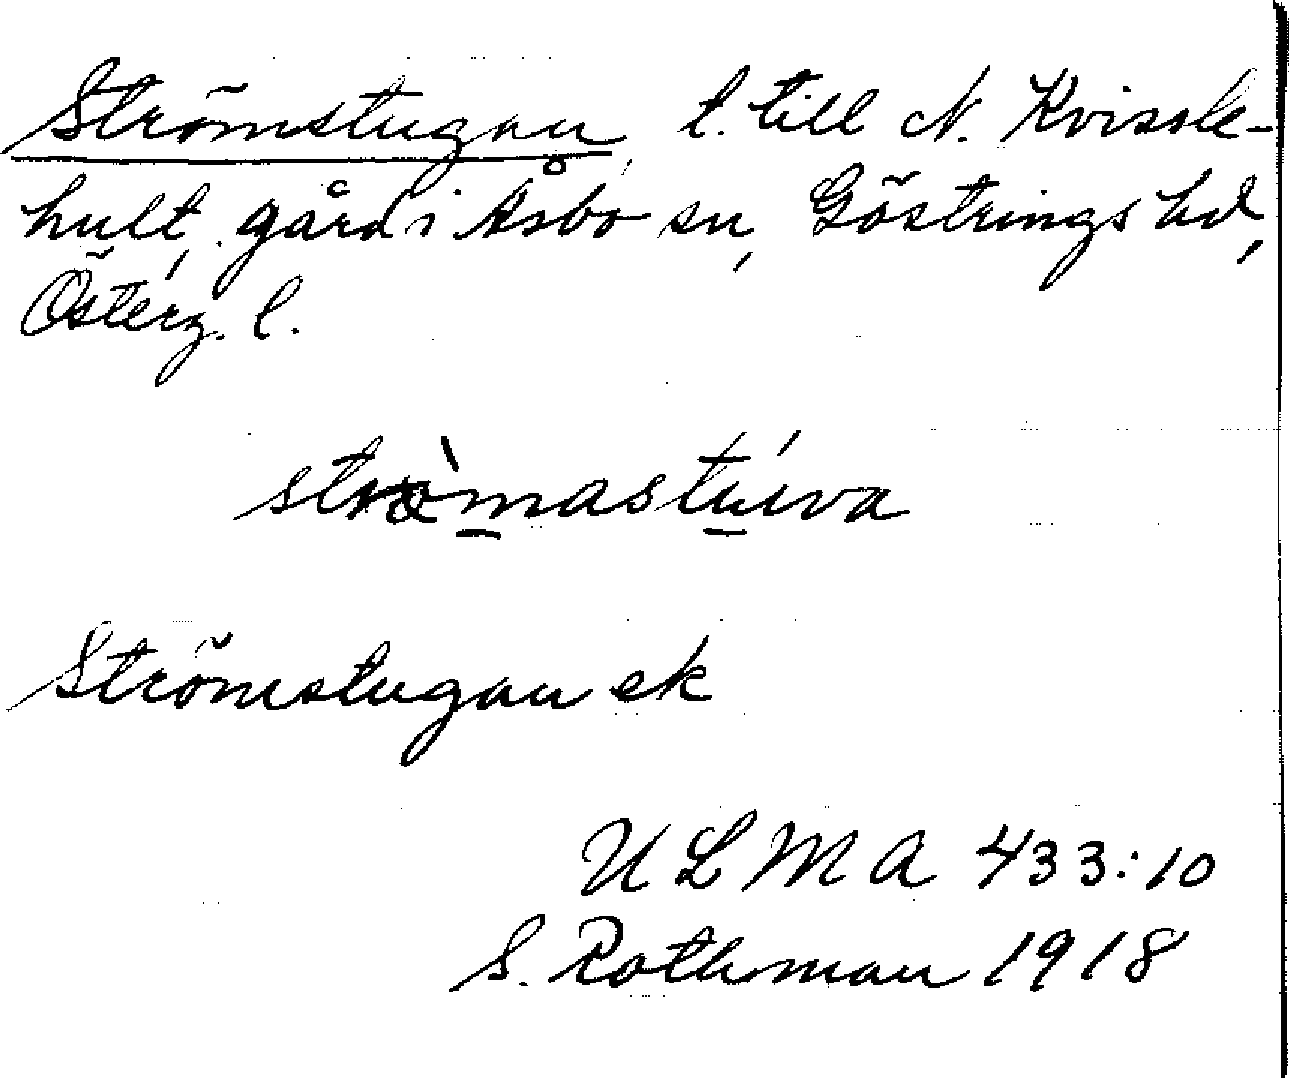 Strömstugan, t. till N. Kvissle-
hult, gård i Åsbo sn, Göstrings hd,
Österg. l.
strömastuva
Strömstugan ek
ULMA 433:10
S. Rothman 1918